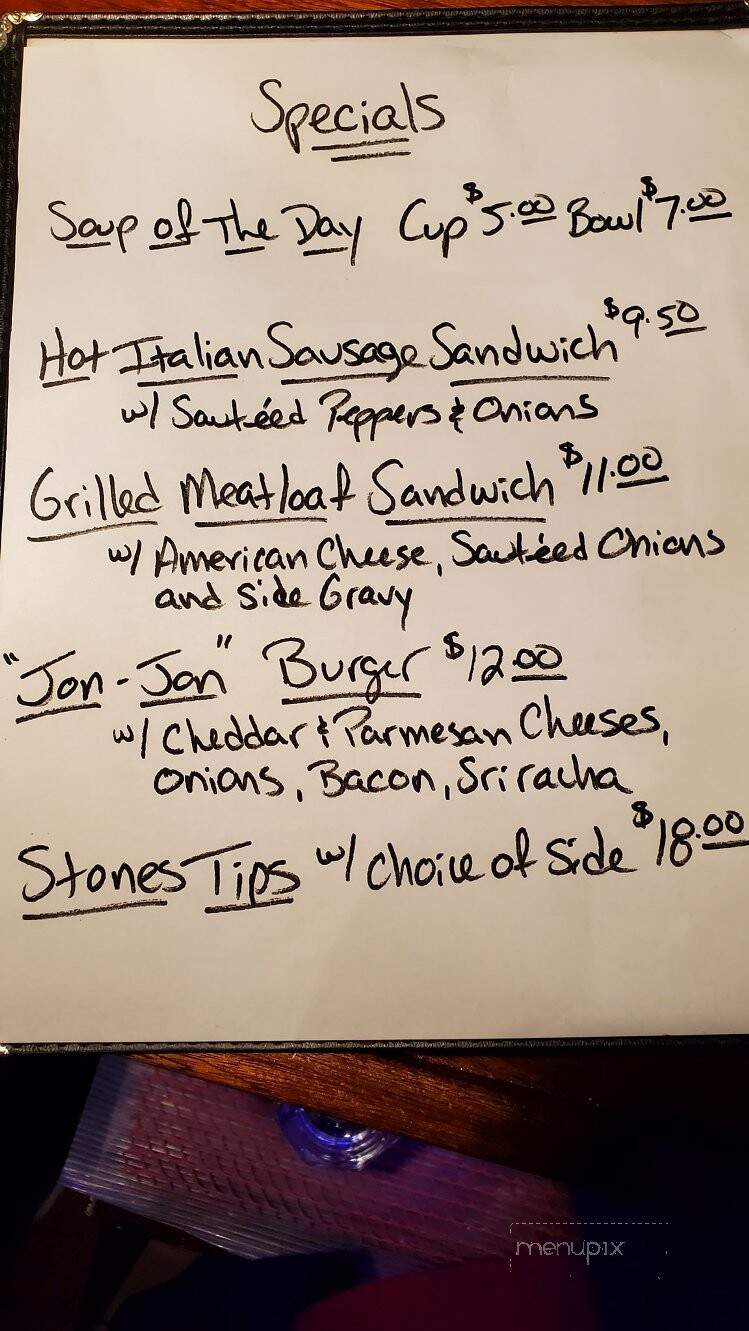 Specials
Soup of The Day Cup $5.00 Bowl $7.00
Hot Italian Sausage Sandwich $9.50
w/ Sautéed Peppers & Onions
Grilled Meatloaf Sandwich $11.00
w/ American Cheese, Sautéed Onions
and Side Gravy
"Jon-Jon" Burger $12.00
w/ Cheddar & Parmesan Cheeses,
Onions, Bacon, Sriracha
Stones Tips w/ Choice of Side $18.00
menupix